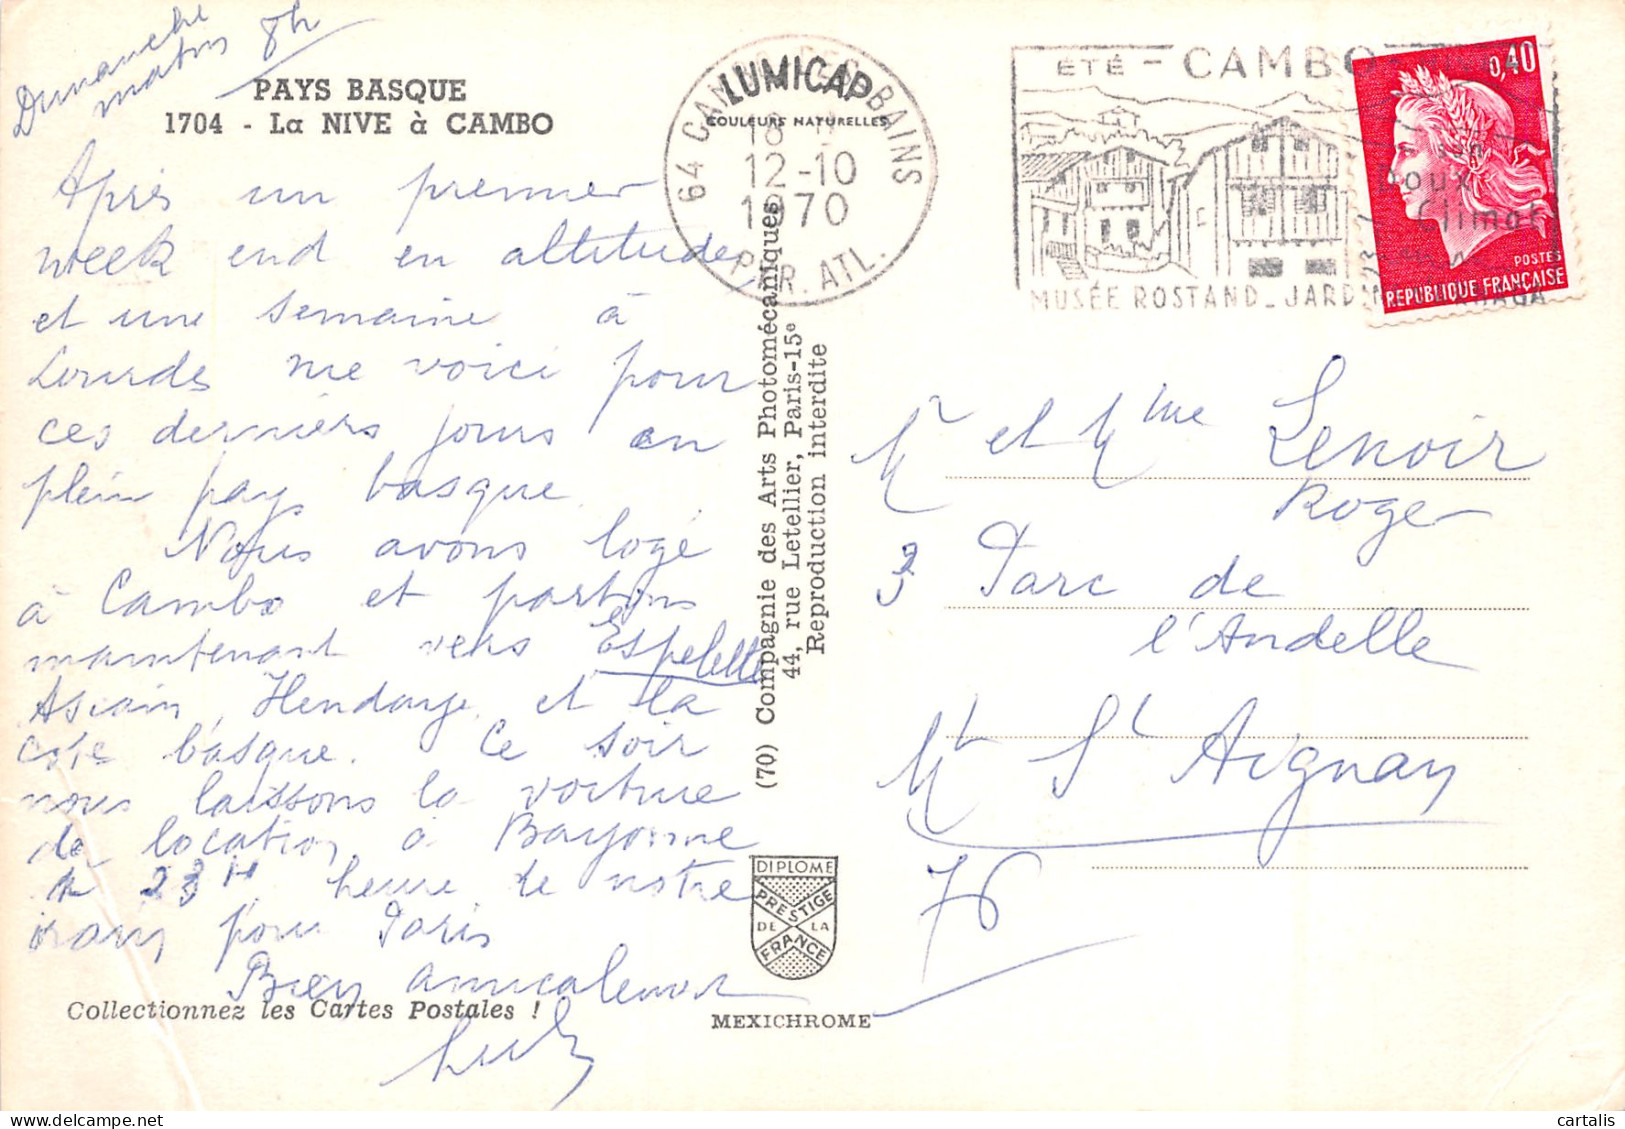 Dimanche
matin 8h
PAYS BASQUE
1704 - La NIVE à CAMBO
Après un premier
week end en altitude
et une semaine à
Lourdes me voici pour
ces derniers jours en
plein pays basque.
Nous avons logé
à Cambo et partons
maintenant vers Espelette
Ascain, Hendaye et la
côte basque. Ce soir
nous laissons la voiture
de location à Bayonne
à 23H heure de notre
train pour Paris
Bien amicalement
Collectionnez les Cartes Postales !
LUMICAP
COULEURS NATURELLES
64 CAMBO-LES-BAINS
18 H
12-10
1970
P. ATL.
(70) Compagnie des Arts Photomécaniques
44, rue Letellier, Paris-15e
Reproduction interdite
DIPLOME
PRESTIGE
DE LA
FRANCE
MEXICHROME
ÉTÉ - CAMBO
un
Doux
Climat
MUSÉE ROSTAND_JARDIN
0,40
POSTES
REPUBLIQUE FRANÇAISE
Mr et Mme Lenoir
Roger
3 Parc de
l'Andelle
Mt St Aignan
76
cartalis